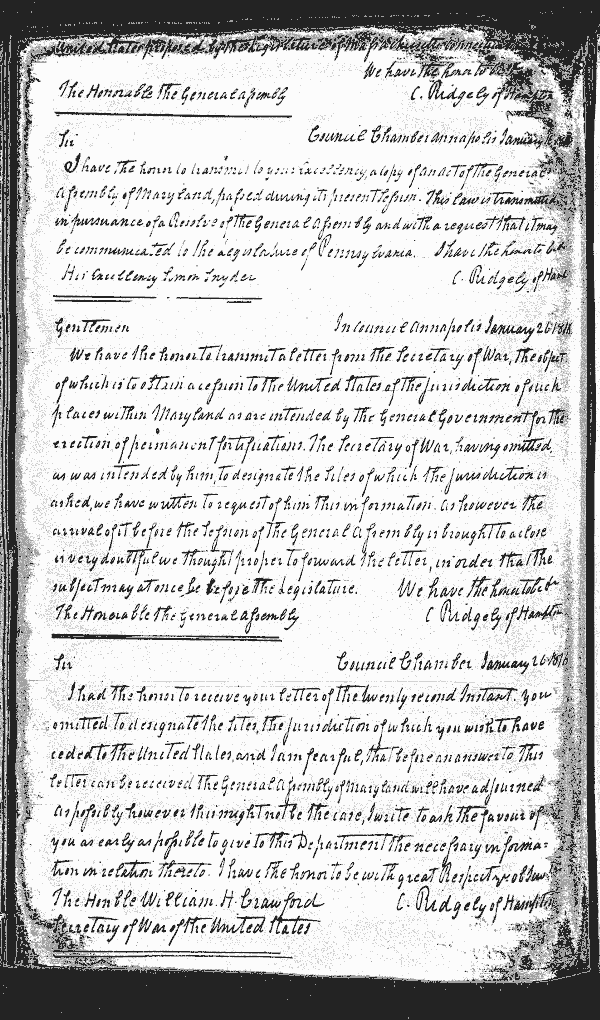 United States proposed by the Legislature of Massachusetts Connecticut
We have the honor to be
The Honorable The General Assembly C. Ridgely of Hampton
Sir Council Chamber Annapolis January
I have the honor to transmit to your Excellency, a copy of an act of the General
Assembly of Maryland, passed during its present Session. This law is transmitted,
in pursuance of a Resolve of the General Assembly and with a request that it may
be communicated to the Legislature of Pennsylvania. I have the honor to be
His Excellency Simon Snyder C. Ridgely of Hamt
Gentlemen In Council Annapolis January 26 1816
We have the honor to transmit a letter from the Secretary of War, the object
of which is to obtain a cession to the United States of the jurisdiction of such
places within Maryland as are intended by the General Government for the
erection of permanent fortifications. The Secretary of War, having omitted,
as was intended by him, to designate the sites of which the jurisdiction is
asked, we have written to request of him this information. As however the
arrival of it before the Session of the General Assembly is brought to a close
is very doubtful we thought proper to forward the letter, in order that the
subject may at once be before the Legislature. We have the honor to be
The Honorable the General Assembly C Ridgely of Hampton
Sir Council Chamber January 26 1816
I had the honor to receive your letter of the twenty second Instant. You
omitted to designate the sites, the jurisdiction of which you wish to have
ceded to the United States, and I am fearful, that before an answer to this
letter can be received the General Assembly of Maryland will have adjourned
As possibly however this might not be the case, I write to ask the favour of
you as early as possible to give to this Department the necessary informa=
tion in relation thereto. I have the honor to be with great Respect yr obt
The Honble William. H. Crawford C. Ridgely of Hampton
Secretary of War of the United States